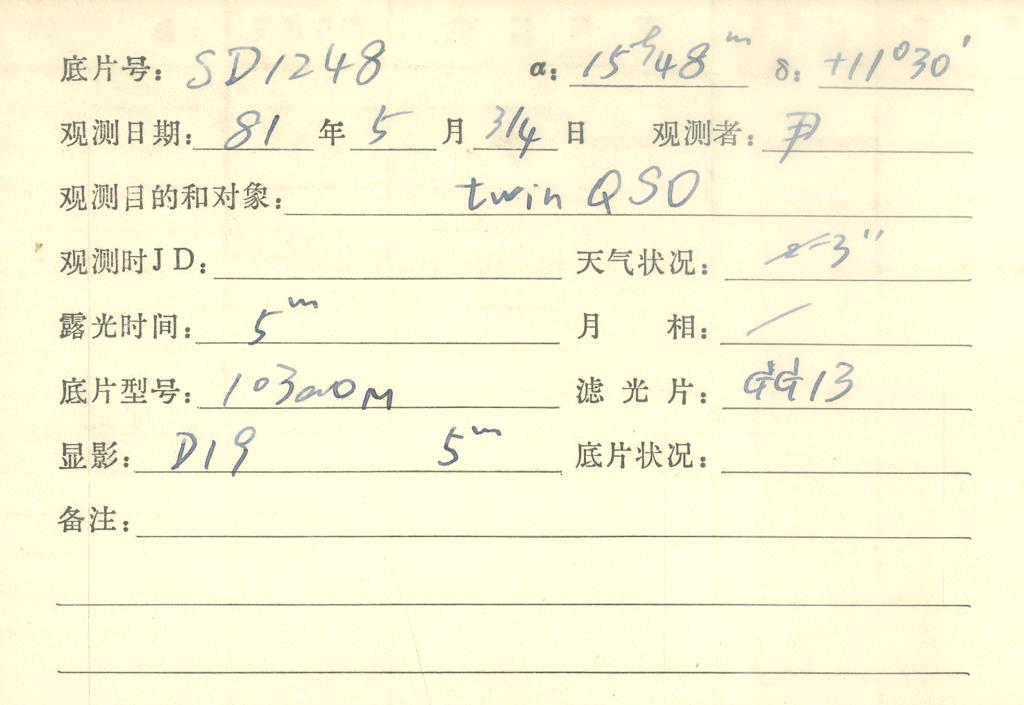 底片号: SD1248 α: 15ʰ48ᵐ δ: +11°30′
观测日期: 81 年 5 月 3/4 日 观测者: 尹
观测目的和对象: twin QSO
观测时JD: 天气状况: z=3″
露光时间: 5ᵐ 月 相: /
底片型号: 103aO 滤 光 片: GG13
显影: D19 5ᵐ 底片状况:
备注: